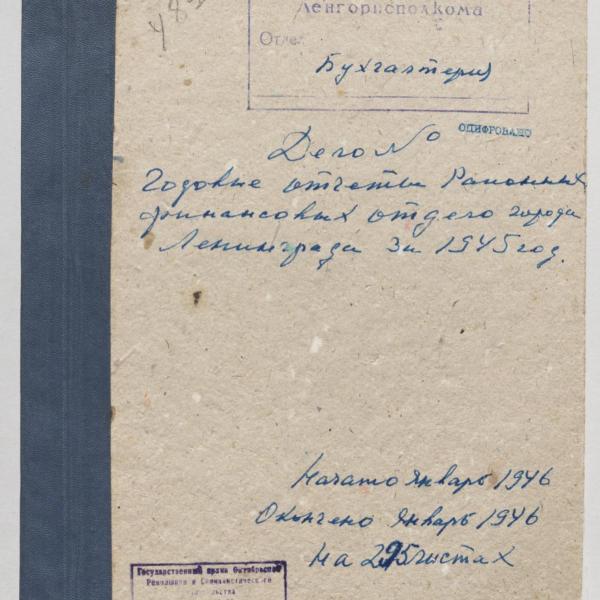 Ленгорисполкома
Отдел
Бухгалтерия
ОЦИФРОВАНО
Дело №
Годовые отчеты Районных
финансовых отдело города
Ленинграда за 1945 год.
Начато январь 1946
Окончено январь 1946
На 295 листах
Государственный архив Октябрьской
Революции и Социалистического